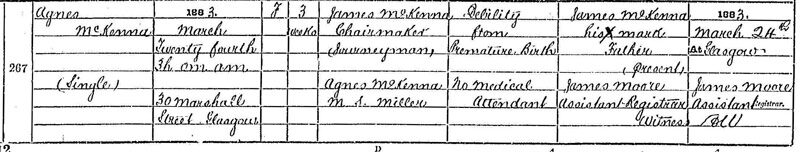 Agnes
McKenna
(Single)
267
1883.
March
Twenty fourth
3h 0m am
30 Marshall
Street Glasgow
F
3
weeks
James McKenna
Chairmaker
(Journeyman)
Agnes McKenna
M. S. Miller
Debility
from
Premature Birth
No medical
Attendant
James McKenna
his X mark
Father
(present)
James Moore
Assistant Registrar
Witness
1883.
March 24th
At Glasgow
James Moore
Assistant Registrar.